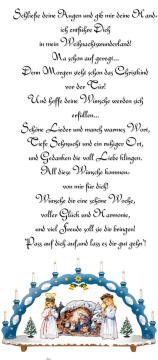 Schließe deine Augen und gib mir deine Hand-
ich entführe Dich
in mein Weihnachtswunderland!
Na schon auf geregt...
Denn Morgen steht schon das Christkind
vor der Tür!
Und hoffe deine Wünsche werden sich
erfüllen...
Schöne Lieder und manch warmes Wort,
Tiefe Sehnsucht und ein ruhiger Ort,
und Gedanken die voll Liebe klingen.
All diese Wünsche kommen-
von mir für dich!
Wünsche dir eine schöne Woche,
voller Glück und Harmonie,
und viel Freude soll sie dir bringen!
Pass auf dich auf und lass es dir gut gehn'!